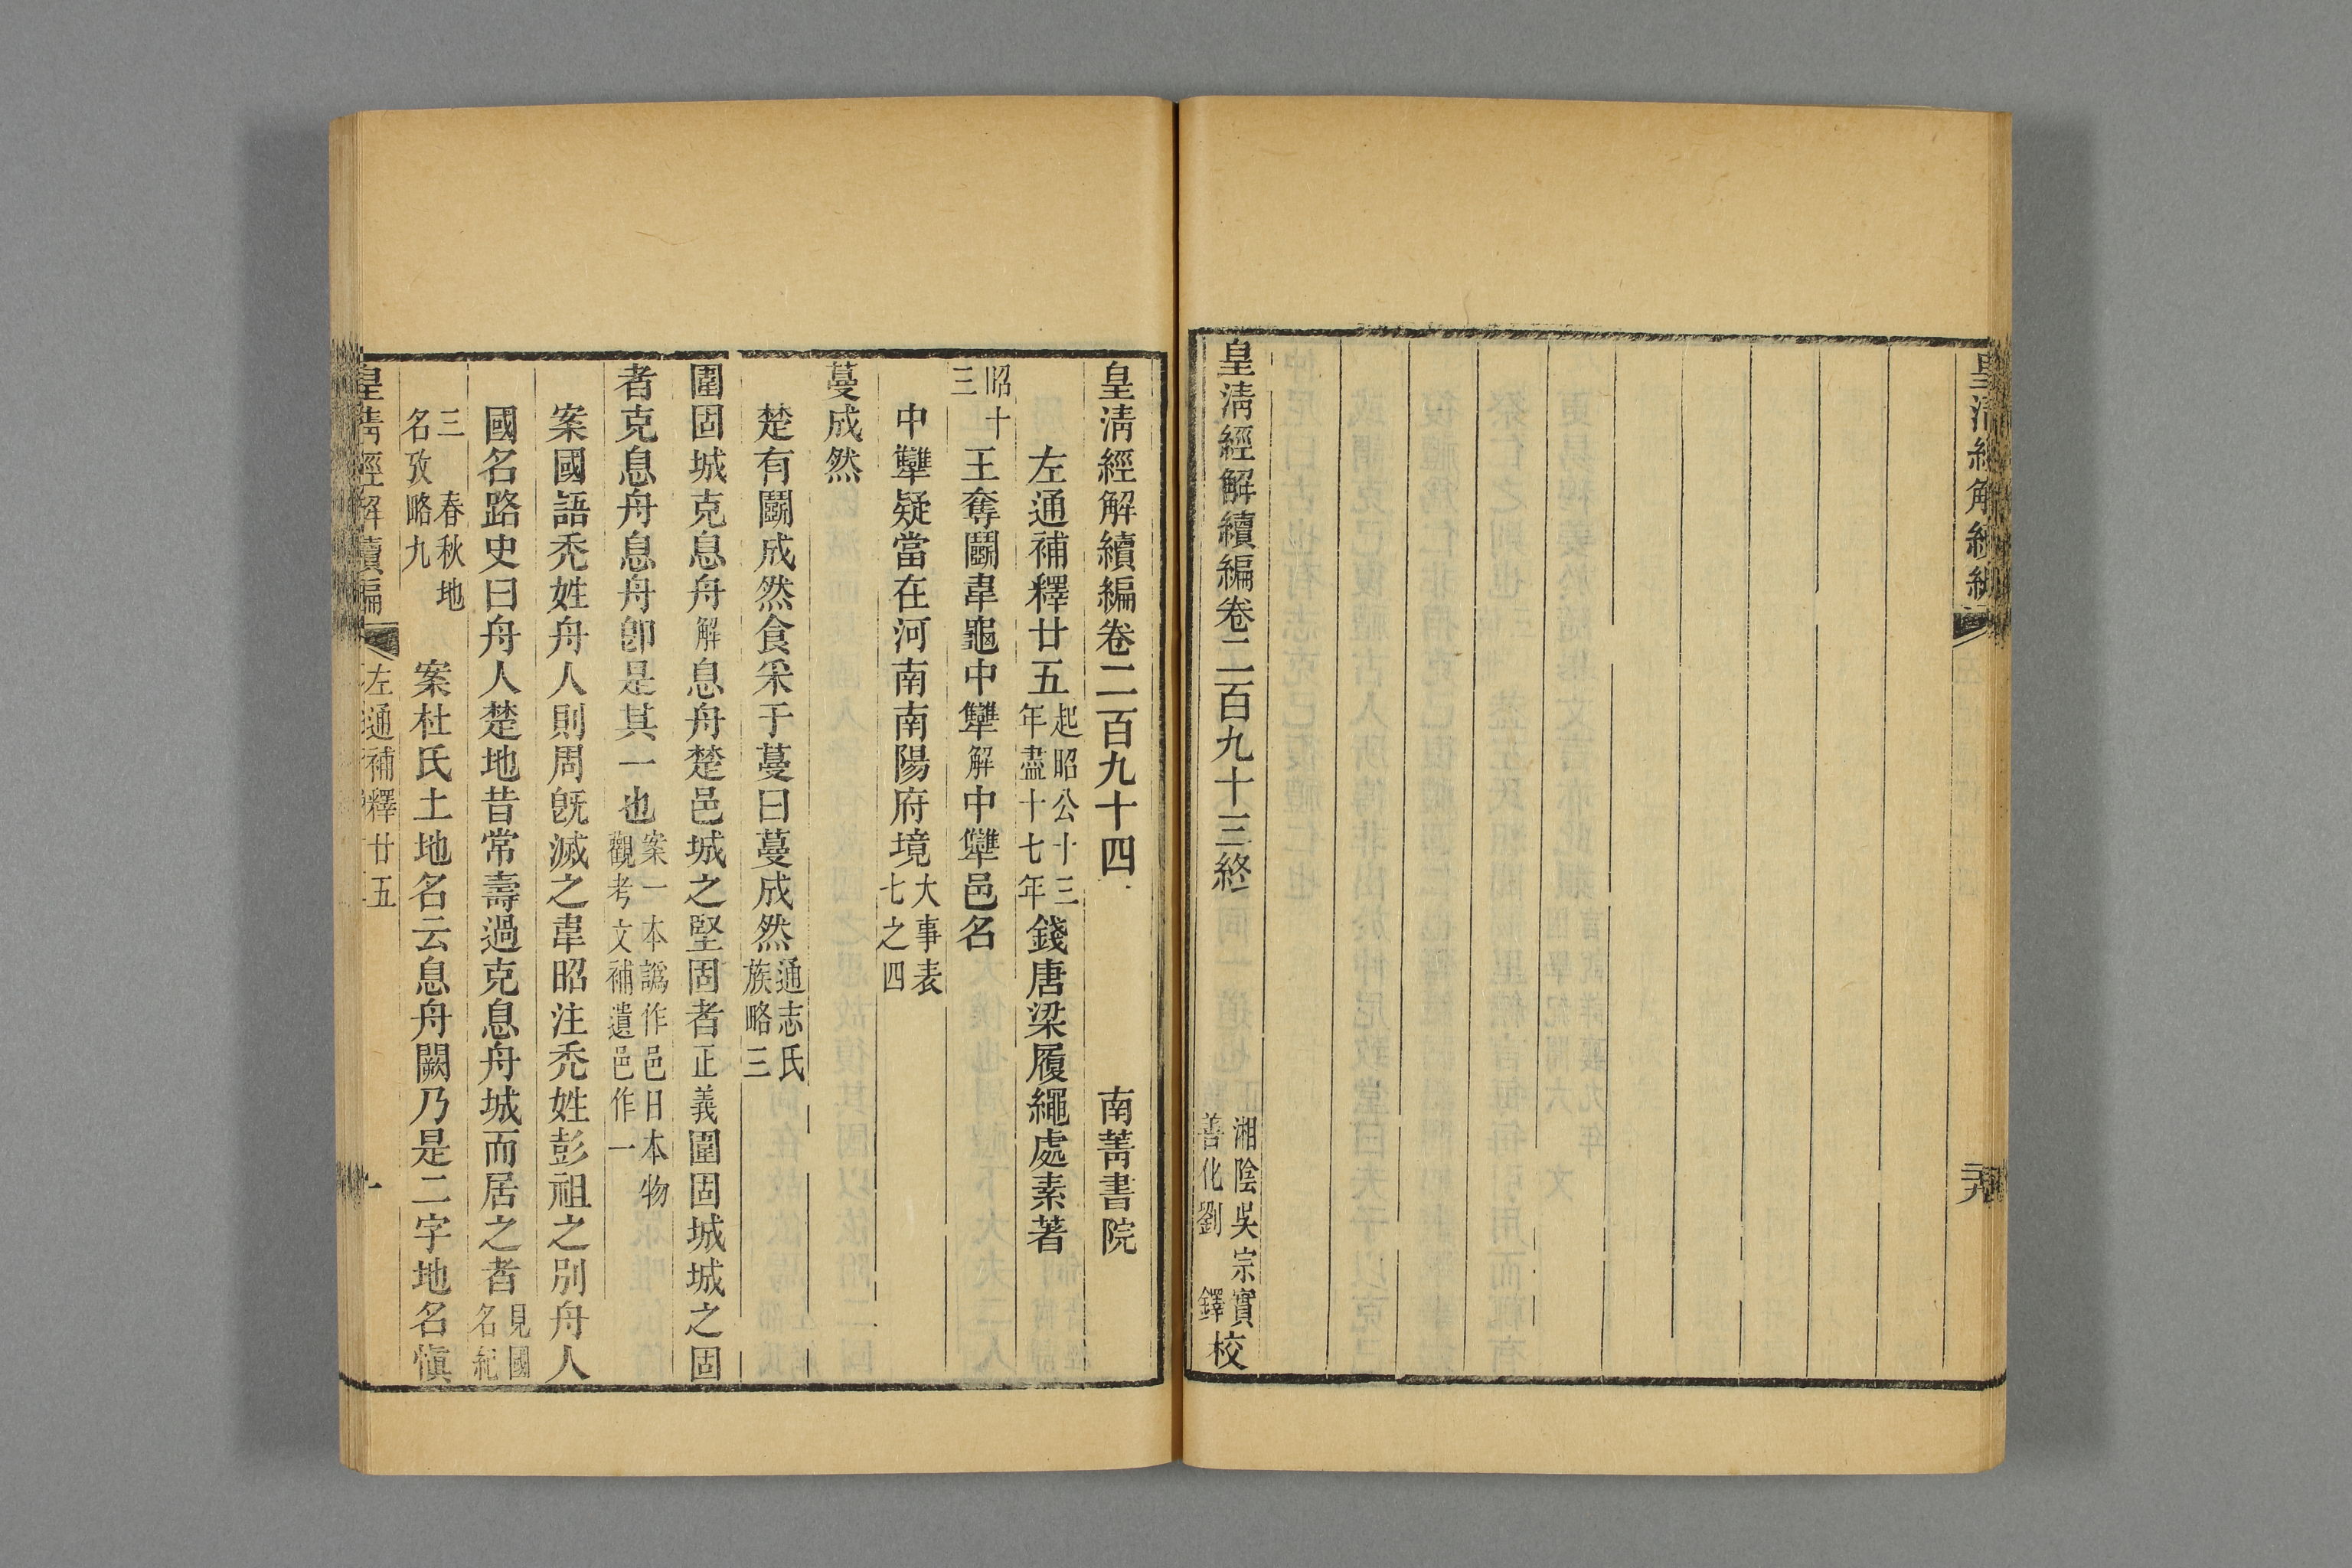 皇清經解續編卷二百九十三終
湘陰吳宗實
善化劉 鐸
校
皇清經解續編卷二百九十四 南菁書院
左通補釋廿五起昭公十三年盡十七年錢唐梁履繩處素著
昭十三王奪鬬韋龜中犨解中犨邑名
中犨疑當在河南南陽府境大事表七之四
蔓成然
楚有鬬成然食采于蔓曰蔓成然通志氏族略三
圍固城克息舟解息舟楚邑城之堅固者正義圍固城城之固
者克息舟息舟卽是其一也案一本譌作邑日本物觀考文補遺邑作一
案國語禿姓舟人則周旣滅之韋昭注禿姓彭祖之別舟人
國名路史曰舟人楚地昔常壽過克息舟城而居之者見國名紀
三 春秋地名攷略九 案杜氏土地名云息舟闕乃是二字地名愼
皇清經解續編 左通補釋廿五 一